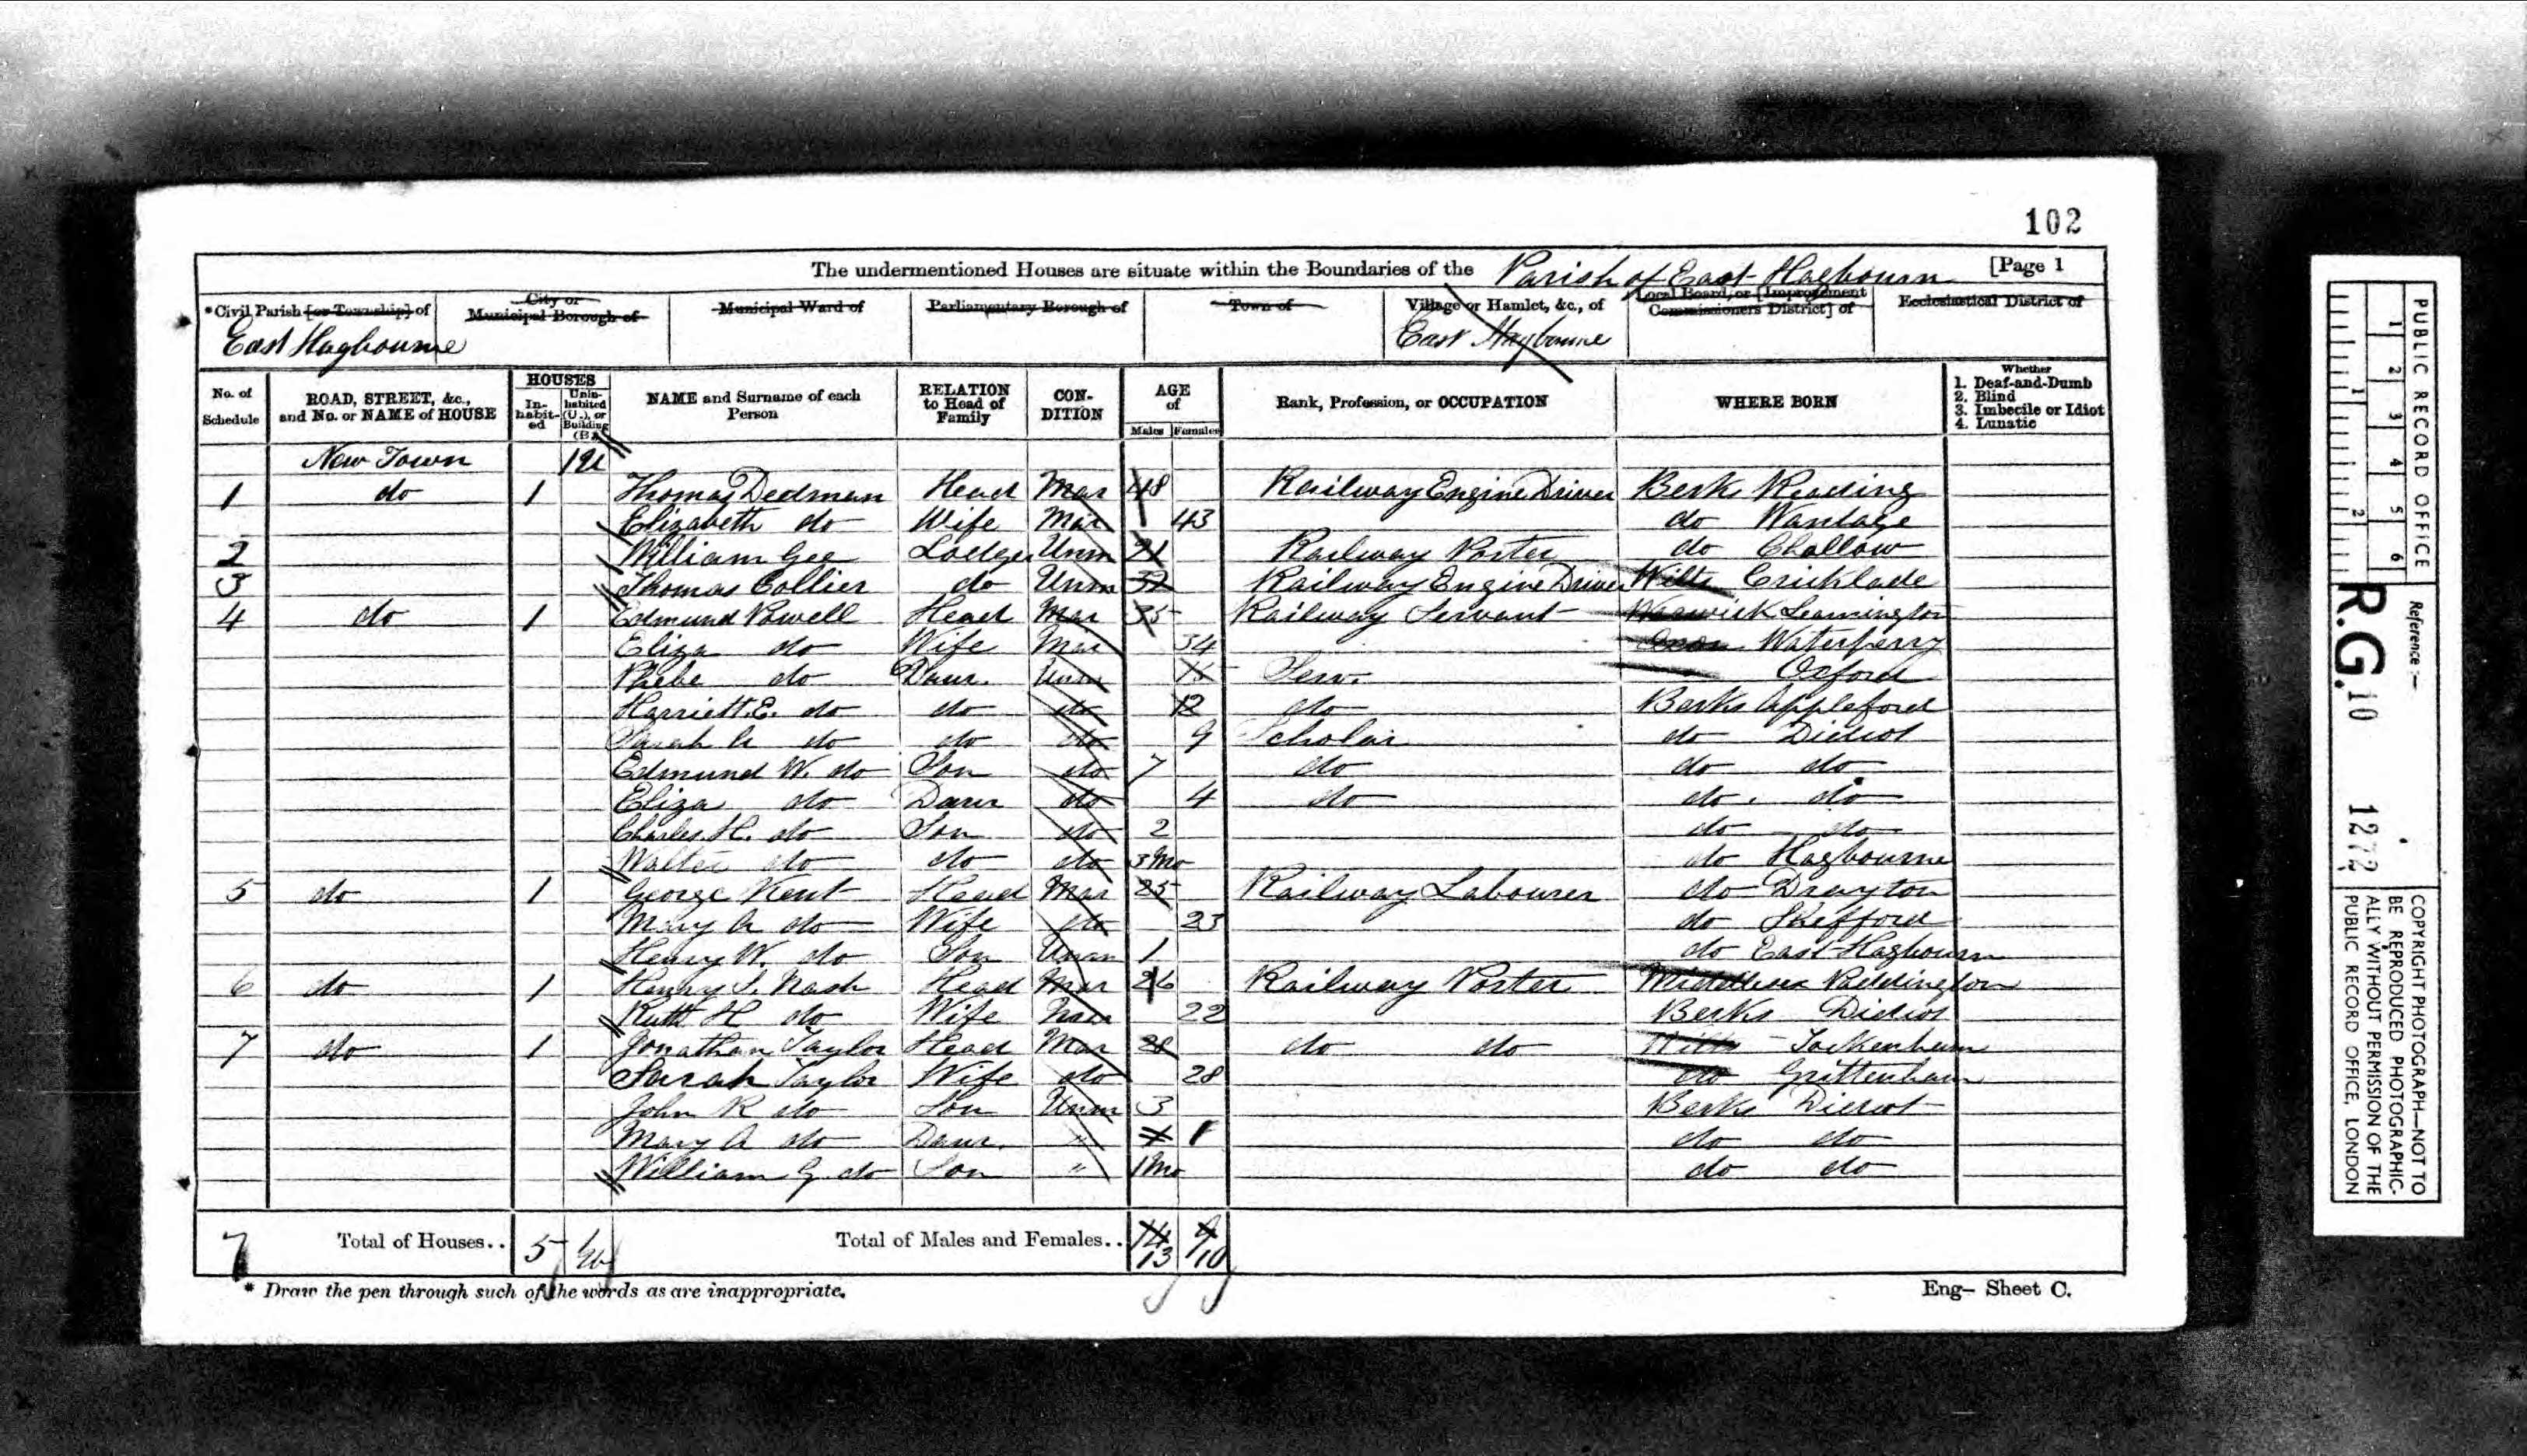 102
The undermentioned Houses are situate within the Boundaries of the Parish of East Hagbourn [Page 1
*Civil Parish [or Township] of City or Municipal Borough of Municipal Ward of Parliamentary Borough of Town of Village or Hamlet, &c., of Local Board, or [Improvement Commissioners District] of Ecclesiastical District of
East Hagbourne East Hagbourne
No. of Schedule ROAD, STREET, &c., and No. or NAME of HOUSE HOUSES In-habit-ed Unin-habited (U.), or Building (B.) NAME and Surname of each Person RELATION to Head of Family CON-DITION AGE of Males Females Rank, Profession, or OCCUPATION WHERE BORN Whether 1. Deaf-and-Dumb 2. Blind 3. Imbecile or Idiot 4. Lunatic
New Town 1 U
1 do 1 Thomas Dedman Head Mar 48 Railway Engine Driver Berks Reading
Elizabeth do Wife Mar 43 do Wantage
2 William Gee Lodger Unm 21 Railway Porter do Challow
3 Thomas Collier do Unm 32 Railway Engine Driver Wilts Cricklade
4 do 1 Edmund Powell Head Mar 35 Railway Servant Warwick Leamington
Eliza do Wife Mar 34 Oxon Waterperry
Phebe do Daur. Unm 15 Serv. Oxford
Harriett E. do do do 12 do Berks Appleford
Sarah A do do do 9 Scholar do Didcot
Edmund W. do Son do 7 do do do
Eliza do Daur do 4 do do do
Charles H. do Son do 2 do do
Walter do do do 3 Mo do Hagbourne
5 do 1 George Kent Head Mar 25 Railway Labourer do Drayton
Mary A do Wife do 23 do Shefford
Henry W. do Son Unm 1 do East Hagbourn
6 do 1 Henry J. Nash Head Mar 26 Railway Porter Middlesex Paddington
Ruth H do Wife Mar 22 Berks Didcot
7 do 1 Jonathan Taylor Head Mar 28 do do Wilts Tockenham
Sarah Taylor Wife do 28 do Grittenham
John R do Son Unm 3 Berks Didcot
Mary A do Daur. " 1 do do
William G do Son " 1 Mo do do
7 Total of Houses.. 5 1 U Total of Males and Females.. 14 13 9 10
* Draw the pen through such of the words as are inappropriate.
Eng- Sheet C.
PUBLIC RECORD OFFICE
1 2 3 4 5 6
1 2
Reference :-
R.G. 10 1272
COPYRIGHT PHOTOGRAPH—NOT TO
BE REPRODUCED PHOTOGRAPHIC-
ALLY WITHOUT PERMISSION OF THE
PUBLIC RECORD OFFICE, LONDON